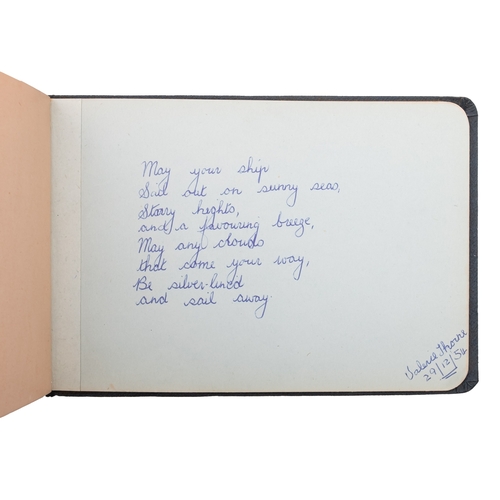 May your ship
Sail out on sunny seas,
Starry heghts,
and a favouring breeze,
May any clouds
that come your way,
Be silver-lined
and sail away.
Valerie Thorne
29/12/54